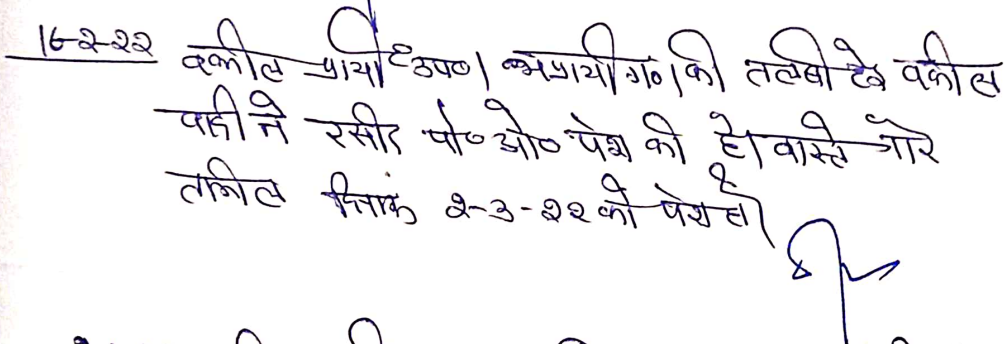 16-2-22 वकील प्रार्थी उप०। अप्रार्थी गण की तलबी हेतु वकील
वादी ने रसीद पो० ओ० पेश की है। वास्ते गौर
तामील दिनांक 2-3-22 को पेश हो।